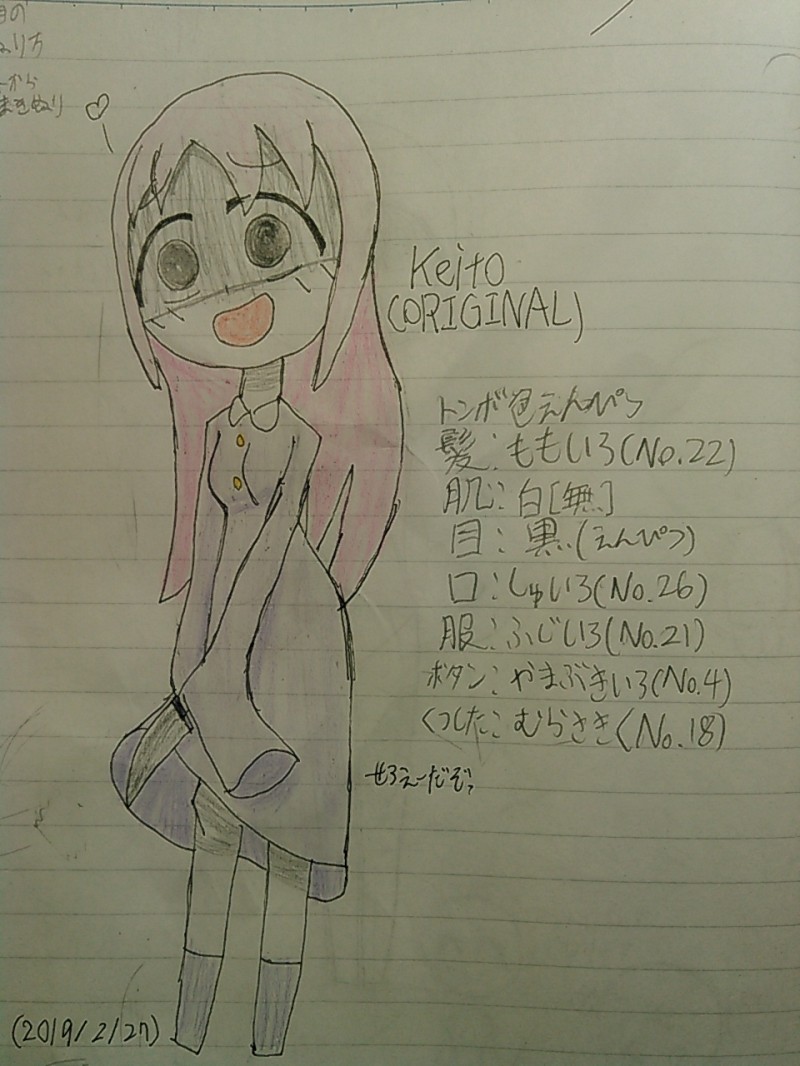 目の
ぬり方
から
まきぬり
Keito
(ORIGINAL)
トンボ色えんぴつ
髪:ももいろ(No.22)
肌:白[無]
目:黒(えんぴつ)
口:しゅいろ(No.26)
服:ふじいろ(No.21)
ボタン:やまぶきいろ(No.4)
くつした:むらさき(No.18)
せろえーだぞっ
(2019/2/27)